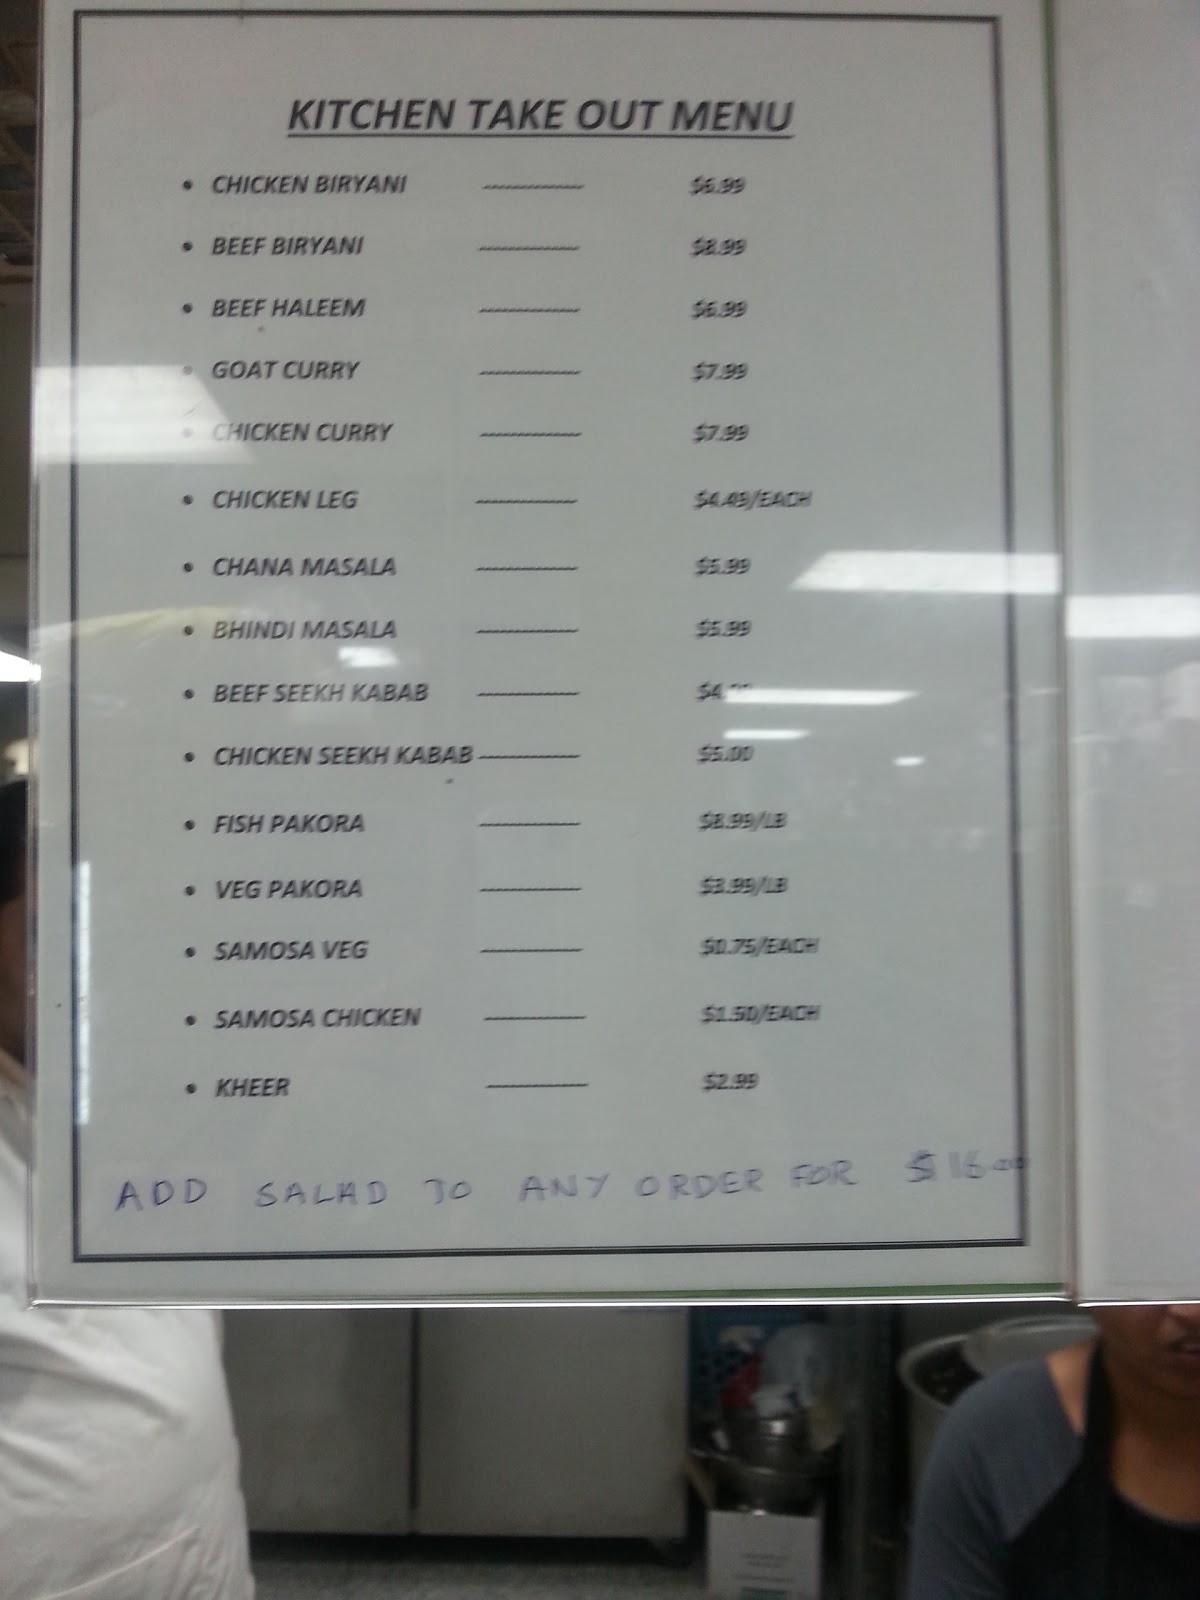 KITCHEN TAKE OUT MENU
• CHICKEN BIRYANI ---------- $6.99
• BEEF BIRYANI ---------- $8.99
• BEEF HALEEM ---------- $6.99
• GOAT CURRY ---------- $7.99
• CHICKEN CURRY ---------- $7.99
• CHICKEN LEG ---------- $4.49/EACH
• CHANA MASALA ---------- $5.99
• BHINDI MASALA ---------- $5.99
• BEEF SEEKH KABAB ----------
• CHICKEN SEEKH KABAB ---------- $5.00
• FISH PAKORA ---------- $8.99/LB
• VEG PAKORA ---------- $3.99/LB
• SAMOSA VEG ---------- $0.75/EACH
• SAMOSA CHICKEN ---------- $1.50/EACH
• KHEER ---------- $2.99
ADD SALAD TO ANY ORDER FOR $16.00